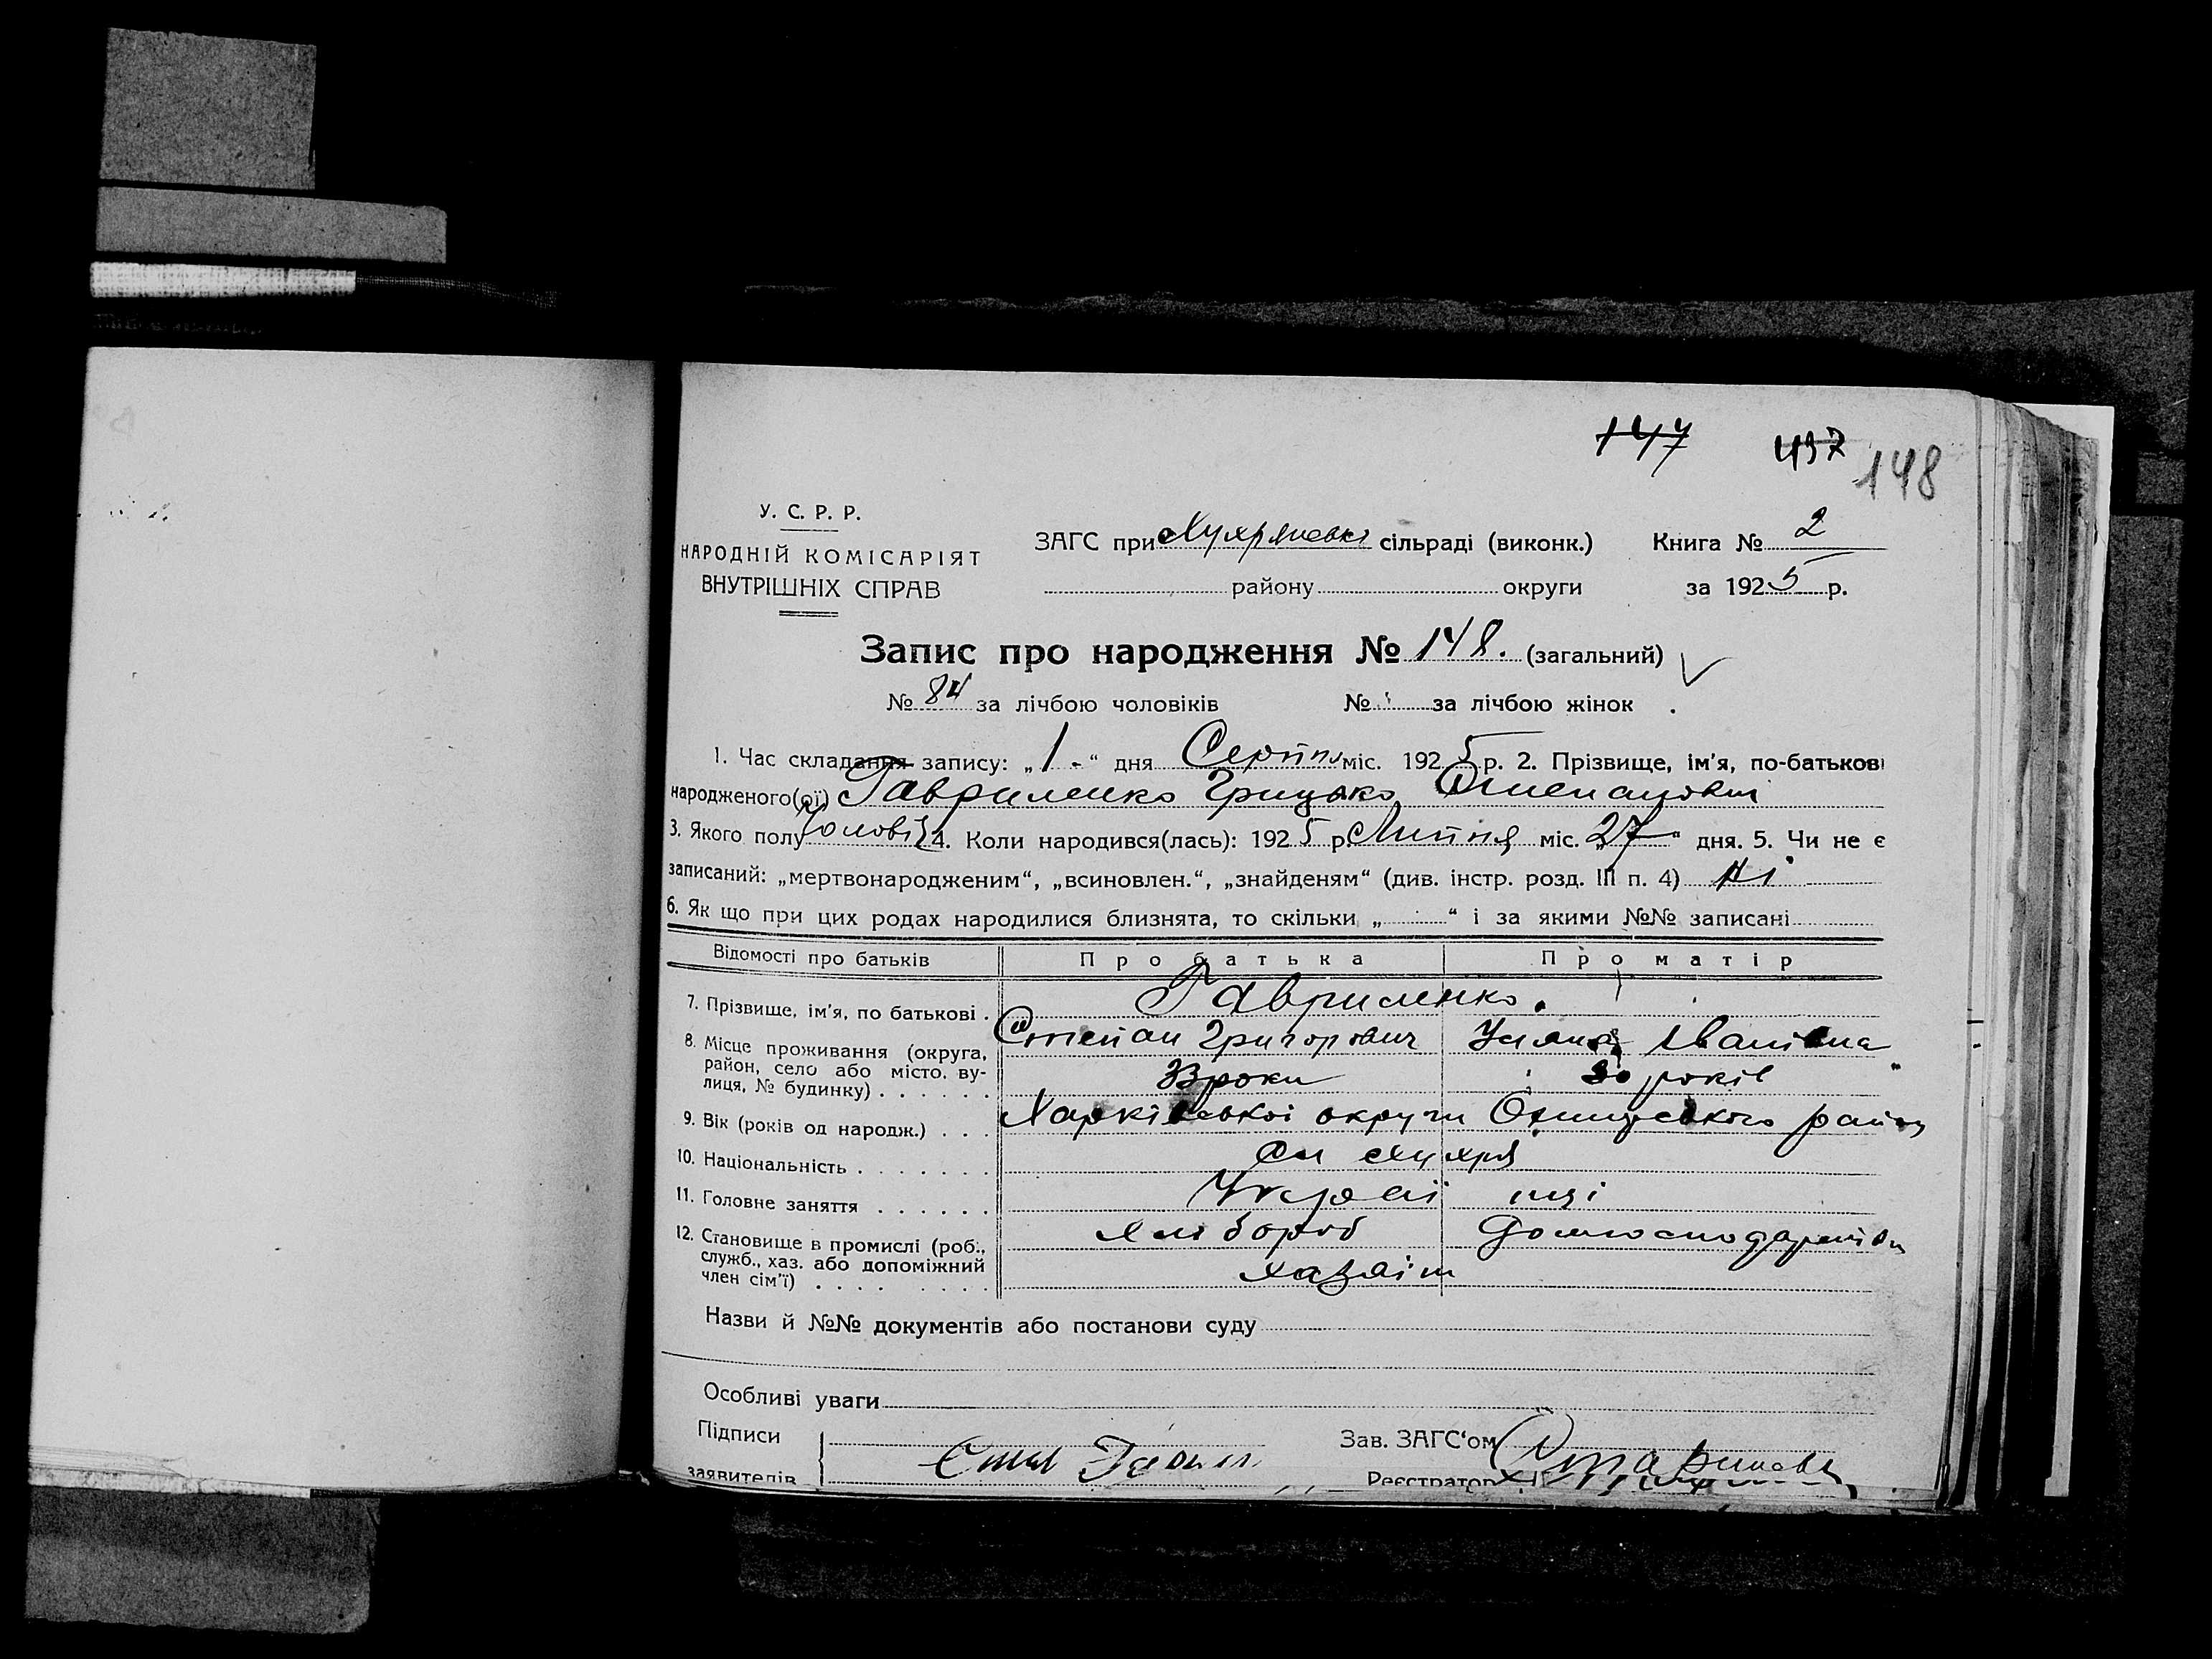 147 437 148
У. С. Р. Р.
НАРОДНІЙ КОМІСАРІЯТ
ВНУТРІШНІХ СПРАВ
ЗАГС при сільраді (виконк.) Книга № 2
району округи за 1925 р.
Запис про народження № 148. (загальний)
№ 84 за лічбою чоловіків № за лічбою жінок
1. Час складання запису: „1-“ дня Серпня міс. 1925 р. 2. Прізвище, ім'я, по-батькові
народженого(ої) Гавриленко Грицько Степанович
3. Якого полу Чоловіч 4. Коли народився(лась): 1925 р. Липня міс. „27“ дня. 5. Чи не є
записаний: „мертвонародженим“, „всиновлен.“, „знайденям“ (див. інстр. розд. III п. 4) Ні
6. Як що при цих родах народилися близнята, то скільки „ “ і за якими №№ записані
Відомості про батьків Про батька Про матір
7. Прізвище, ім'я, по батькові . Гавриленко.
Степан Григорович Уляна Іванівна
8. Місце проживання (округа,
район, село або місто, ву-
лиця, № будинку) . . . . . .
33 роки 30 років
9. Вік (років од народж.) . . . Харківської округи Охтирського району
10. Національність . . . . . . . Сл Хухря
11. Головне заняття . . . . . . Україн інці
12. Становище в промислі (роб.,
служб., хаз. або допоміжний
член сім'ї) . . . . . . . .
Хлібороб Домгосподарств
хазяїн
Назви й №№ документів або постанови суду
Особливі уваги
Підписи
заявителів
Степ Гаврил
Зав. ЗАГС‘ом
Реєстратор